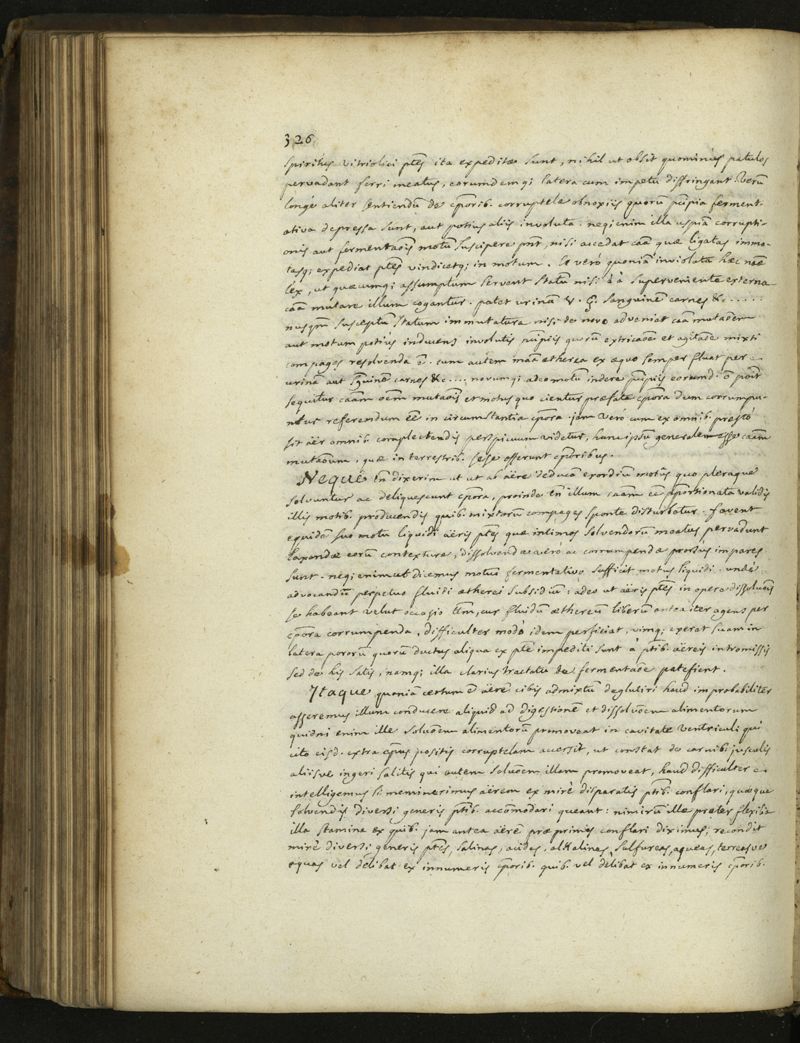 326
spiritus vitriolici ptes ita expeditæ sunt, nihil ut obsit quominus patulos
pervadant ferri meatus, eorumdemqi latera cum impetu diffringant. Verũ
longè aliter sentiendũ de cporib. corruptelæ obnoxiis quorũ pcipia ferment-
ativa depressa sunt, aut potius aliis involuta. neqi enim illa uspiã corrupti-
onis aut fermentaõis motũ suscipere pnt, nisi accedat caã quæ ligatas immo-
tasqi expediat ptes vindicetqi in motum. Et verò quoniã inviolata hæc
lex, ut quæcumqi assumptum servent statũ nisi à superveniente externa
caã mutare illum cogantur. patet urinã v. g. sanguinẽ carnes &c.....
nusqm susceptũ statum immutatura nisi de novo adveniat caã mutatõem
aut motum potius inducens involutis pcipiis quorũ extricaõe et agitaõe mixti
compages resolvenda ẽ. cum autem maã ætherea ex æquo semper fluat per
urinã aut sguinẽ carnes &c.... novumqi adeo motũ indere pcipiis eorumd. õ poit
sequitur caãm oem mutaõis et motus quo cientur præfata cpora dum corrumpu-
ntur referendum ẽe in circumstantia cpora. jam verò cum ex omnib. prestò
sit aër omnib. complectendis perspicuum videtur, hunc ipsũ generalem esse caãm
mutaõum, quæ in terrestrib. sese offerunt cporibus.
Neque tñ dixerim ut ut ab aëre deducã exordiũ motus quo pleraque
solvuntur ac deliquescunt cpora, proinde tñ illum caãm ẽe pportionatã validis
illis motib. producendis quib. mixtorũ compages sponte disturbatur. favent
equidẽ suo motu liquidi aëris ptes quæ intimos solvendorũ meatus pervadunt
laxandæ eorũ contexturæ, dissolvendæ vero ac corrumpendæ prorsus impares
sunt. neqi enim ut diximus motui fermentativo sufficit motus liquidi. unde
advocandũ perpetuo fluidi ætherei subsidiũ: adeo ut aëris ptes in opere dissoluõis
se habeant velut occasio tm, cur fluidũ æthereũ liberũ antea iter agens per
cpora corrumpenda, difficulter modò idem perficiat, vimqi exerat suam in
latera pororũ quorũ ductus aliqua ex pte impediti sunt a ptib. aëreis intromissis
sed de his satis, namqi illa clarius tractatu de fermentaõe patefient.
Itaque quoniã certum ẽ aërẽ cibis admixtũ deglutiri haud improbabiliter
asseremus illum conducere aliquid ad digestionẽ et dissoluõem alimentorum
quidni enim ille soluõem alimentorũ promoveat in cavitate ventriculi qui
cito eisd. extra cpus positis corruptelam accersit, ut constat de carnib. jusculis
aliisve ingeri solitis qui autem soluõem illam promoveat, haud difficulter
intelligemus si meminerimus aërem ex mirè disparatis ptib. conflari, quæque
solvendis diversi generis ptib. accõmodari queant: nimirũ illæ præter flexilia
illa stamina ex quib. jam antea aërẽ præprimis conflari diximus, recondit
mirè diversi generis ptes, salinas, acidas, alkalinas, sulfureas, aqueas, terreasve
equas vel delibat ex innumeris cporib. quib. vel delibat ex innumeris cporib.